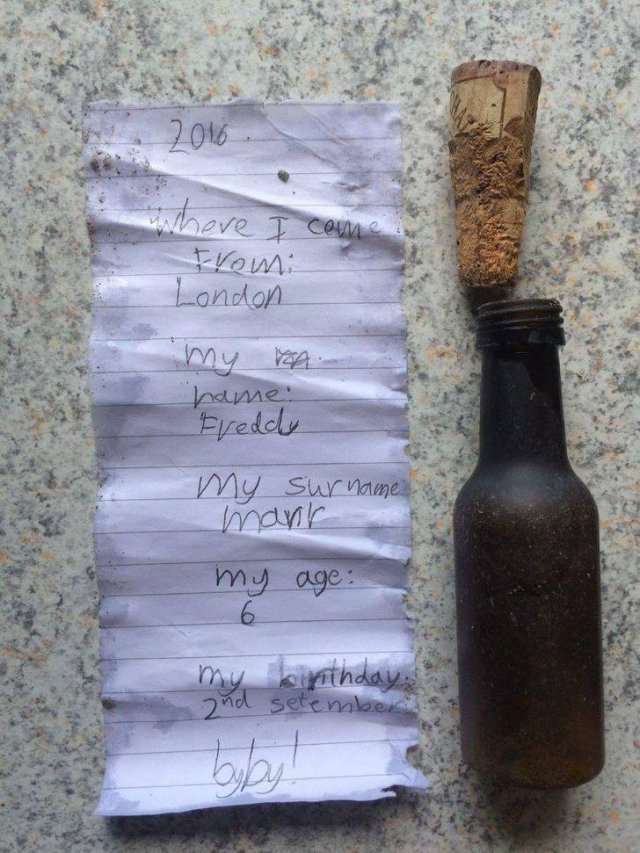 2016
Where I come
From:
London
my
name:
Freddy
My surname
marir
my age:
6
my birthday:
2nd setember
byby!